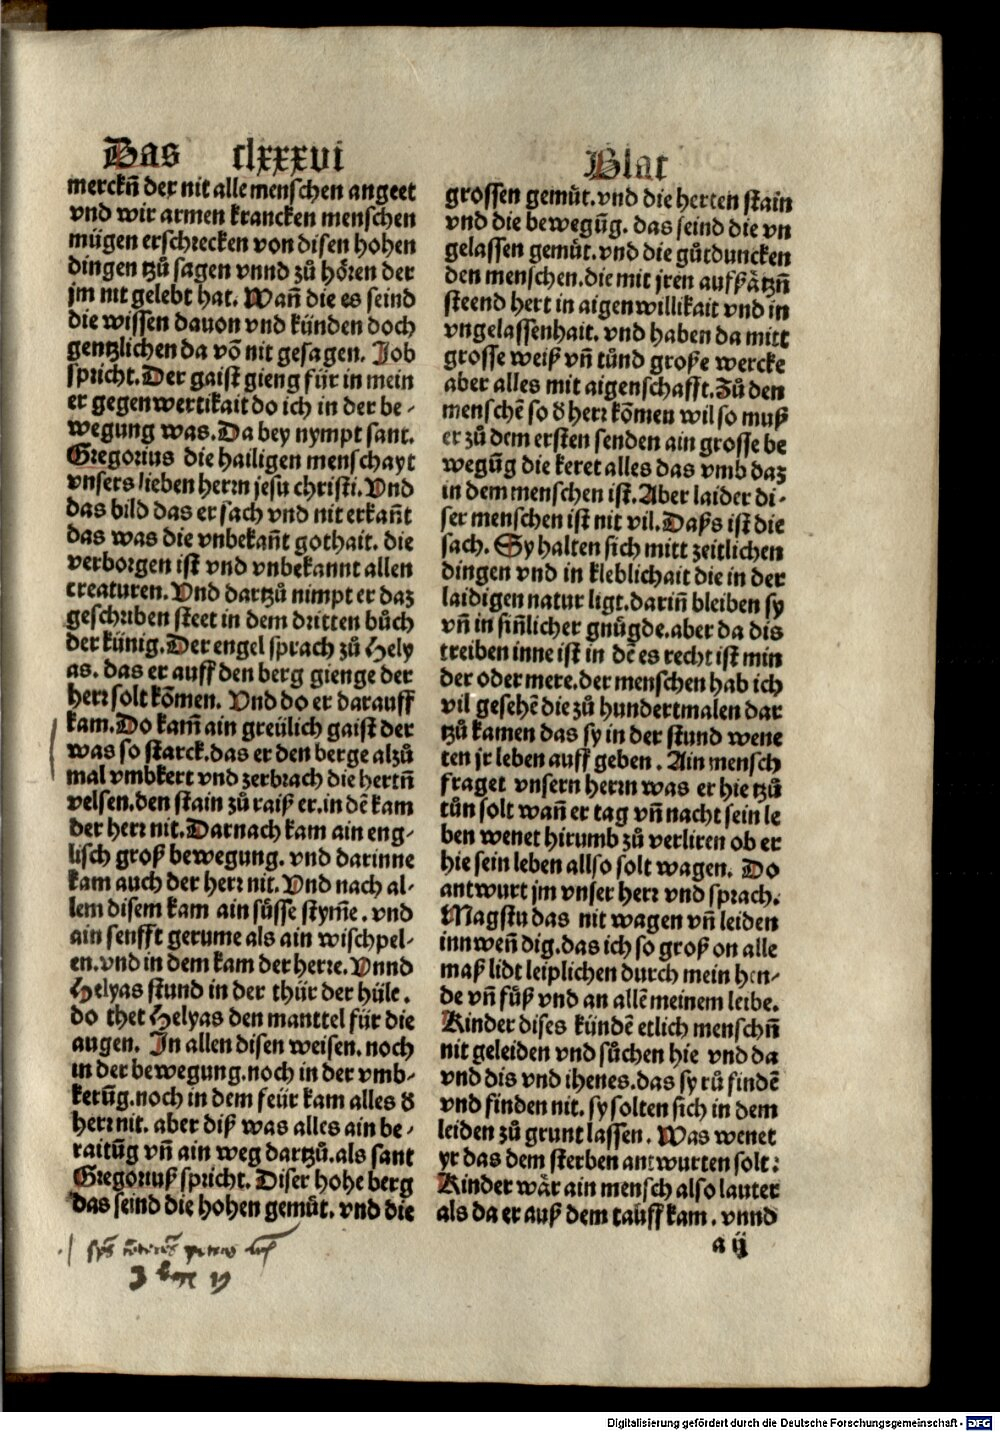 Das clxxxvi Blat
merckñ der nit alle menschen angeet
vnd wir armen krancken menschen
mügen erschrecken von disen hohen
dingen tzů sagen vnnd zů hören der
jm nit gelebt hat. Wañ die es seind
die wissen dauon vnd künden doch
gentzlichen da võ nit gesagen. Job
spricht. Der gaist gieng für in mein
er gegenwertikait do ich in der be-
wegung was. Da bey nympt sant.
Gregorius die hailigen menschayt
vnsers lieben herrn jesu christi. Vnd
das bild das er sach vnd nit erkañt
das was die vnbekañt gothait. die
verborgen ist vnd vnbekannt allen
creaturen. Vnd dartzů nimpt er daz
geschriben steet in dem dritten bůch
der künig. Der engel sprach zů Hely
as. das er auff den berg gienge der
herr solt kõmen. Vnd do er darauff
kam. Do kam̃ ain greülich gaist der
was so starck. das er den berge alzů
mal vmbkert vnd zerbrach die hertñ
velsen. den stain zů raiß er. in dẽ kam
der herr nit. Darnach kam ain eng-
lisch groß bewegung. vnd darinne
kam auch der herr nit. Vnd nach al-
lem disem kam ain süsse stym̃e. vnd
ain senfft gerume als ain wischpel-
en. vnd in dem kam der herre. Vnnd
Helyas stund in der thür der hüle.
do thet Helyas den manttel für die
augen. In allen disen weisen. noch
in der bewegung. noch in der vmb-
kerũg. noch in dem feür kam alles d̕
herr nit. aber diß was alles ain be-
raitũg vñ ain weg dartzů. als sant
Gregoriuß spricht. Diser hohe berg
das seind die hohen gemůt. vnd die
3 19
grossen gemůt. vnd die herten stain
vnd die bewegũg. das seind die vn
gelassen gemůt. vnd die gůtduncken
den menschen. die mit jren aufsätzñ
steend hert in aigenwillikait vnd in
vngelassenhait. vnd haben da mitt
grosse weiß vñ tůnd große wercke
aber alles mit aigenschafft. Zů den
menschẽ so d̕ herr kõmen wil so muß
er zů dem ersten senden ain grosse be
wegũg die keret alles das vmb daz
in dem menschen ist. Aber laider di-
ser menschen ist nit vil. Daß is ist die
sach. Sy halten sich mitt zeitlichen
dingen vnd in kleblichait die in der
laidigen natur ligt. dariñ bleiben sy
vñ in siñlicher gnügde. aber da dis
treiben inne ist in dẽ es recht ist min
der oder mere. der menschen hab ich
vil gesehẽ die zů hundertmalen dar
tzů kamen das sy in der stund wene
ten jr leben auff geben. Ain mensch
fraget vnsern herrn was er hie tzů
tůn solt wañ er tag vñ nacht sein le
ben wenet hirumb zů verliren ob er
hie sein leben allso solt wagen. Do
antwurt jm vnser herr vnd sprach.
Magstu das nit wagen vñ leiden
innweñ dig. das ich so groß on alle
maß lidt leiplichen durch mein hen-
de vñ füß vnd an allẽ meinem leibe.
Kinder dises kündẽ etlich menschñ
nit geleiden vnd sůchen hie vnd da
vnd dis vnd ihenes. das sy rů findẽ
vnd finden nit. sy solten sich in dem
leiden zů grunt lassen. Was wenet
yr das dem sterben antwurten solt:
Kinder wär ain mensch also lauter
als da er auß dem tauff kam. vnnd
a ij
Digitalisierung gefördert durch die Deutsche Forschungsgemeinschaft - DFG